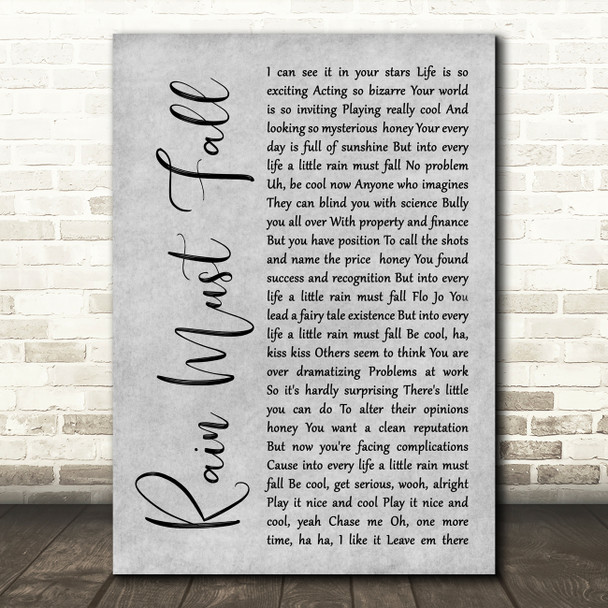 Rain Must Fall
I can see it in your stars Life is so
exciting Acting so bizarre Your world
is so inviting Playing really cool And
looking so mysterious honey Your every
day is full of sunshine But into every
life a little rain must fall No problem
Uh, be cool now Anyone who imagines
They can blind you with science Bully
you all over With property and finance
But you have position To call the shots
and name the price honey You found
success and recognition But into every
life a little rain must fall Flo Jo You
lead a fairy tale existence But into every
life a little rain must fall Be cool, ha,
kiss kiss Others seem to think You are
over dramatizing Problems at work
So it's hardly surprising There's little
you can do To alter their opinions
honey You want a clean reputation
But now you're facing complications
Cause into every life a little rain must
fall Be cool, get serious, wooh, alright
Play it nice and cool Play it nice and
cool, yeah Chase me Oh, one more
time, ha ha, I like it Leave em there